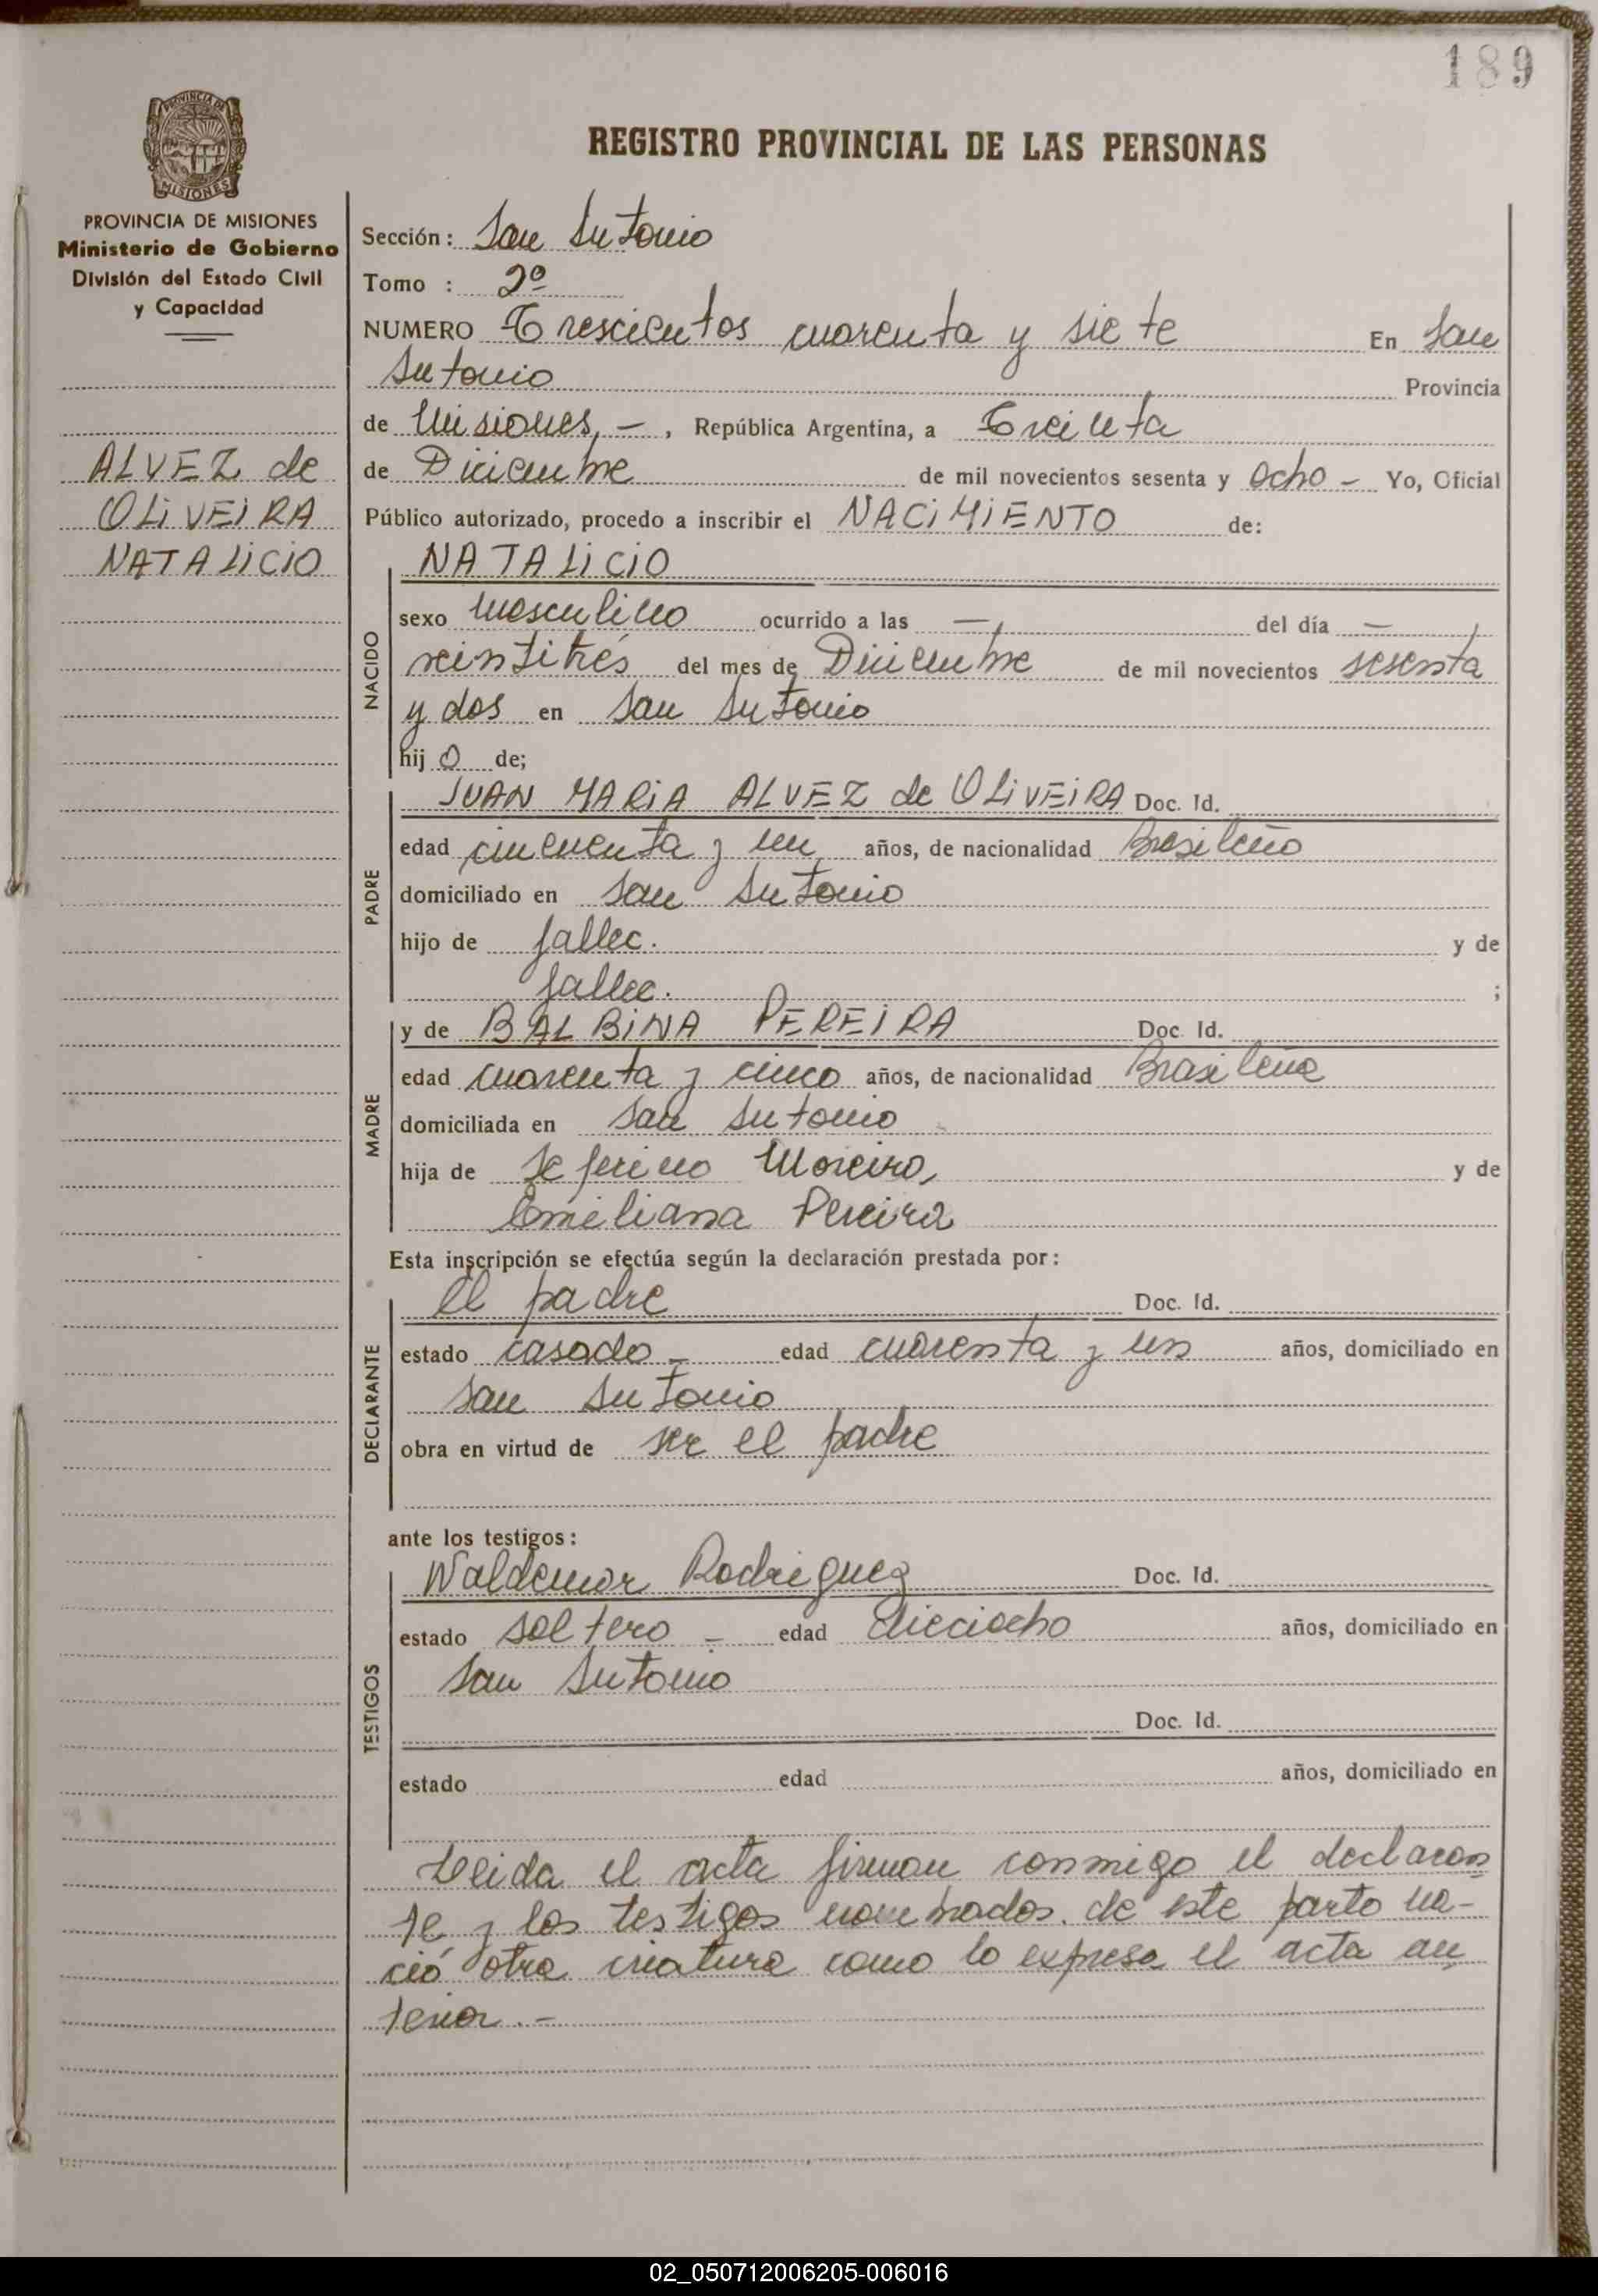 189
PROVINCIA DE
MISIONES
REGISTRO PROVINCIAL DE LAS PERSONAS
PROVINCIA DE MISIONES
Ministerio de Gobierno
División del Estado Civil
y Capacidad
ALVEZ de
OLIVEIRA
NATALICIO
Sección: San Antonio
Tomo : 2º
NUMERO Trescientos cuarenta y siete En San
Antonio Provincia
de Misiones, - , República Argentina, a Treinta
de Diciembre de mil novecientos sesenta y ocho - Yo, Oficial
Público autorizado, procedo a inscribir el NACIMIENTO de:
NACIDO
NATALICIO
sexo masculino ocurrido a las —, del día —,
veintitrés del mes de Diciembre de mil novecientos sesenta
y dos en San Antonio
hij o de;
PADRE
JUAN MARIA ALVEZ de OLIVEIRA Doc. Id.
edad cincuenta y un años, de nacionalidad Brasileño
domiciliado en San Antonio
hijo de fallec. y de
fallec. ;
MADRE
y de BALBINA PEREIRA Doc. Id.
edad cuarenta y cinco años, de nacionalidad Brasileña
domiciliada en San Antonio
hija de Seferino Moreira, y de
Emiliana Pereira
Esta inscripción se efectúa según la declaración prestada por:
DECLARANTE
el padre Doc. Id.
estado casado - edad cuarenta y un años, domiciliado en
San Antonio
obra en virtud de ser el padre
ante los testigos:
TESTIGOS
Waldemar Rodriguez Doc. Id.
estado soltero - edad dieciocho años, domiciliado en
San Antonio
Doc. Id.
estado edad años, domiciliado en
Leida el acta firman conmigo el declaran
te y los testigos nombrados. de este parto na-
ció otra criatura como lo expresa el acta an
terior.-
02_050712006205-006016